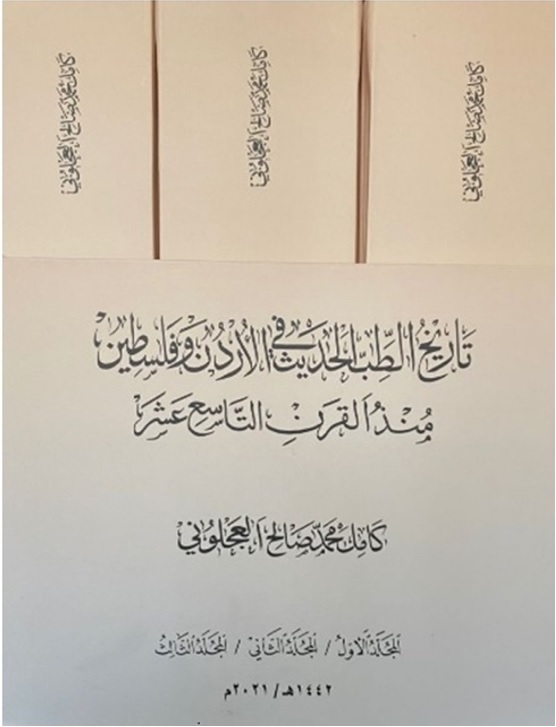 كامل محمد صالح العجلوني
كامل محمد صالح العجلوني
كامل محمد صالح العجلوني
تَاريخُ الطِّبّ الحَديث في الأُردُن وَفَلسطِين
مُنذُ القَرنِ التَّاسِع عَشَر
كَامِل محمّد صَالح العَجلوُني
المجَلّد الأوّلُ / المجَلّد الثّاني / المجَلّد الثّالِث
١٤٤٢هـ/٢٠٢١م